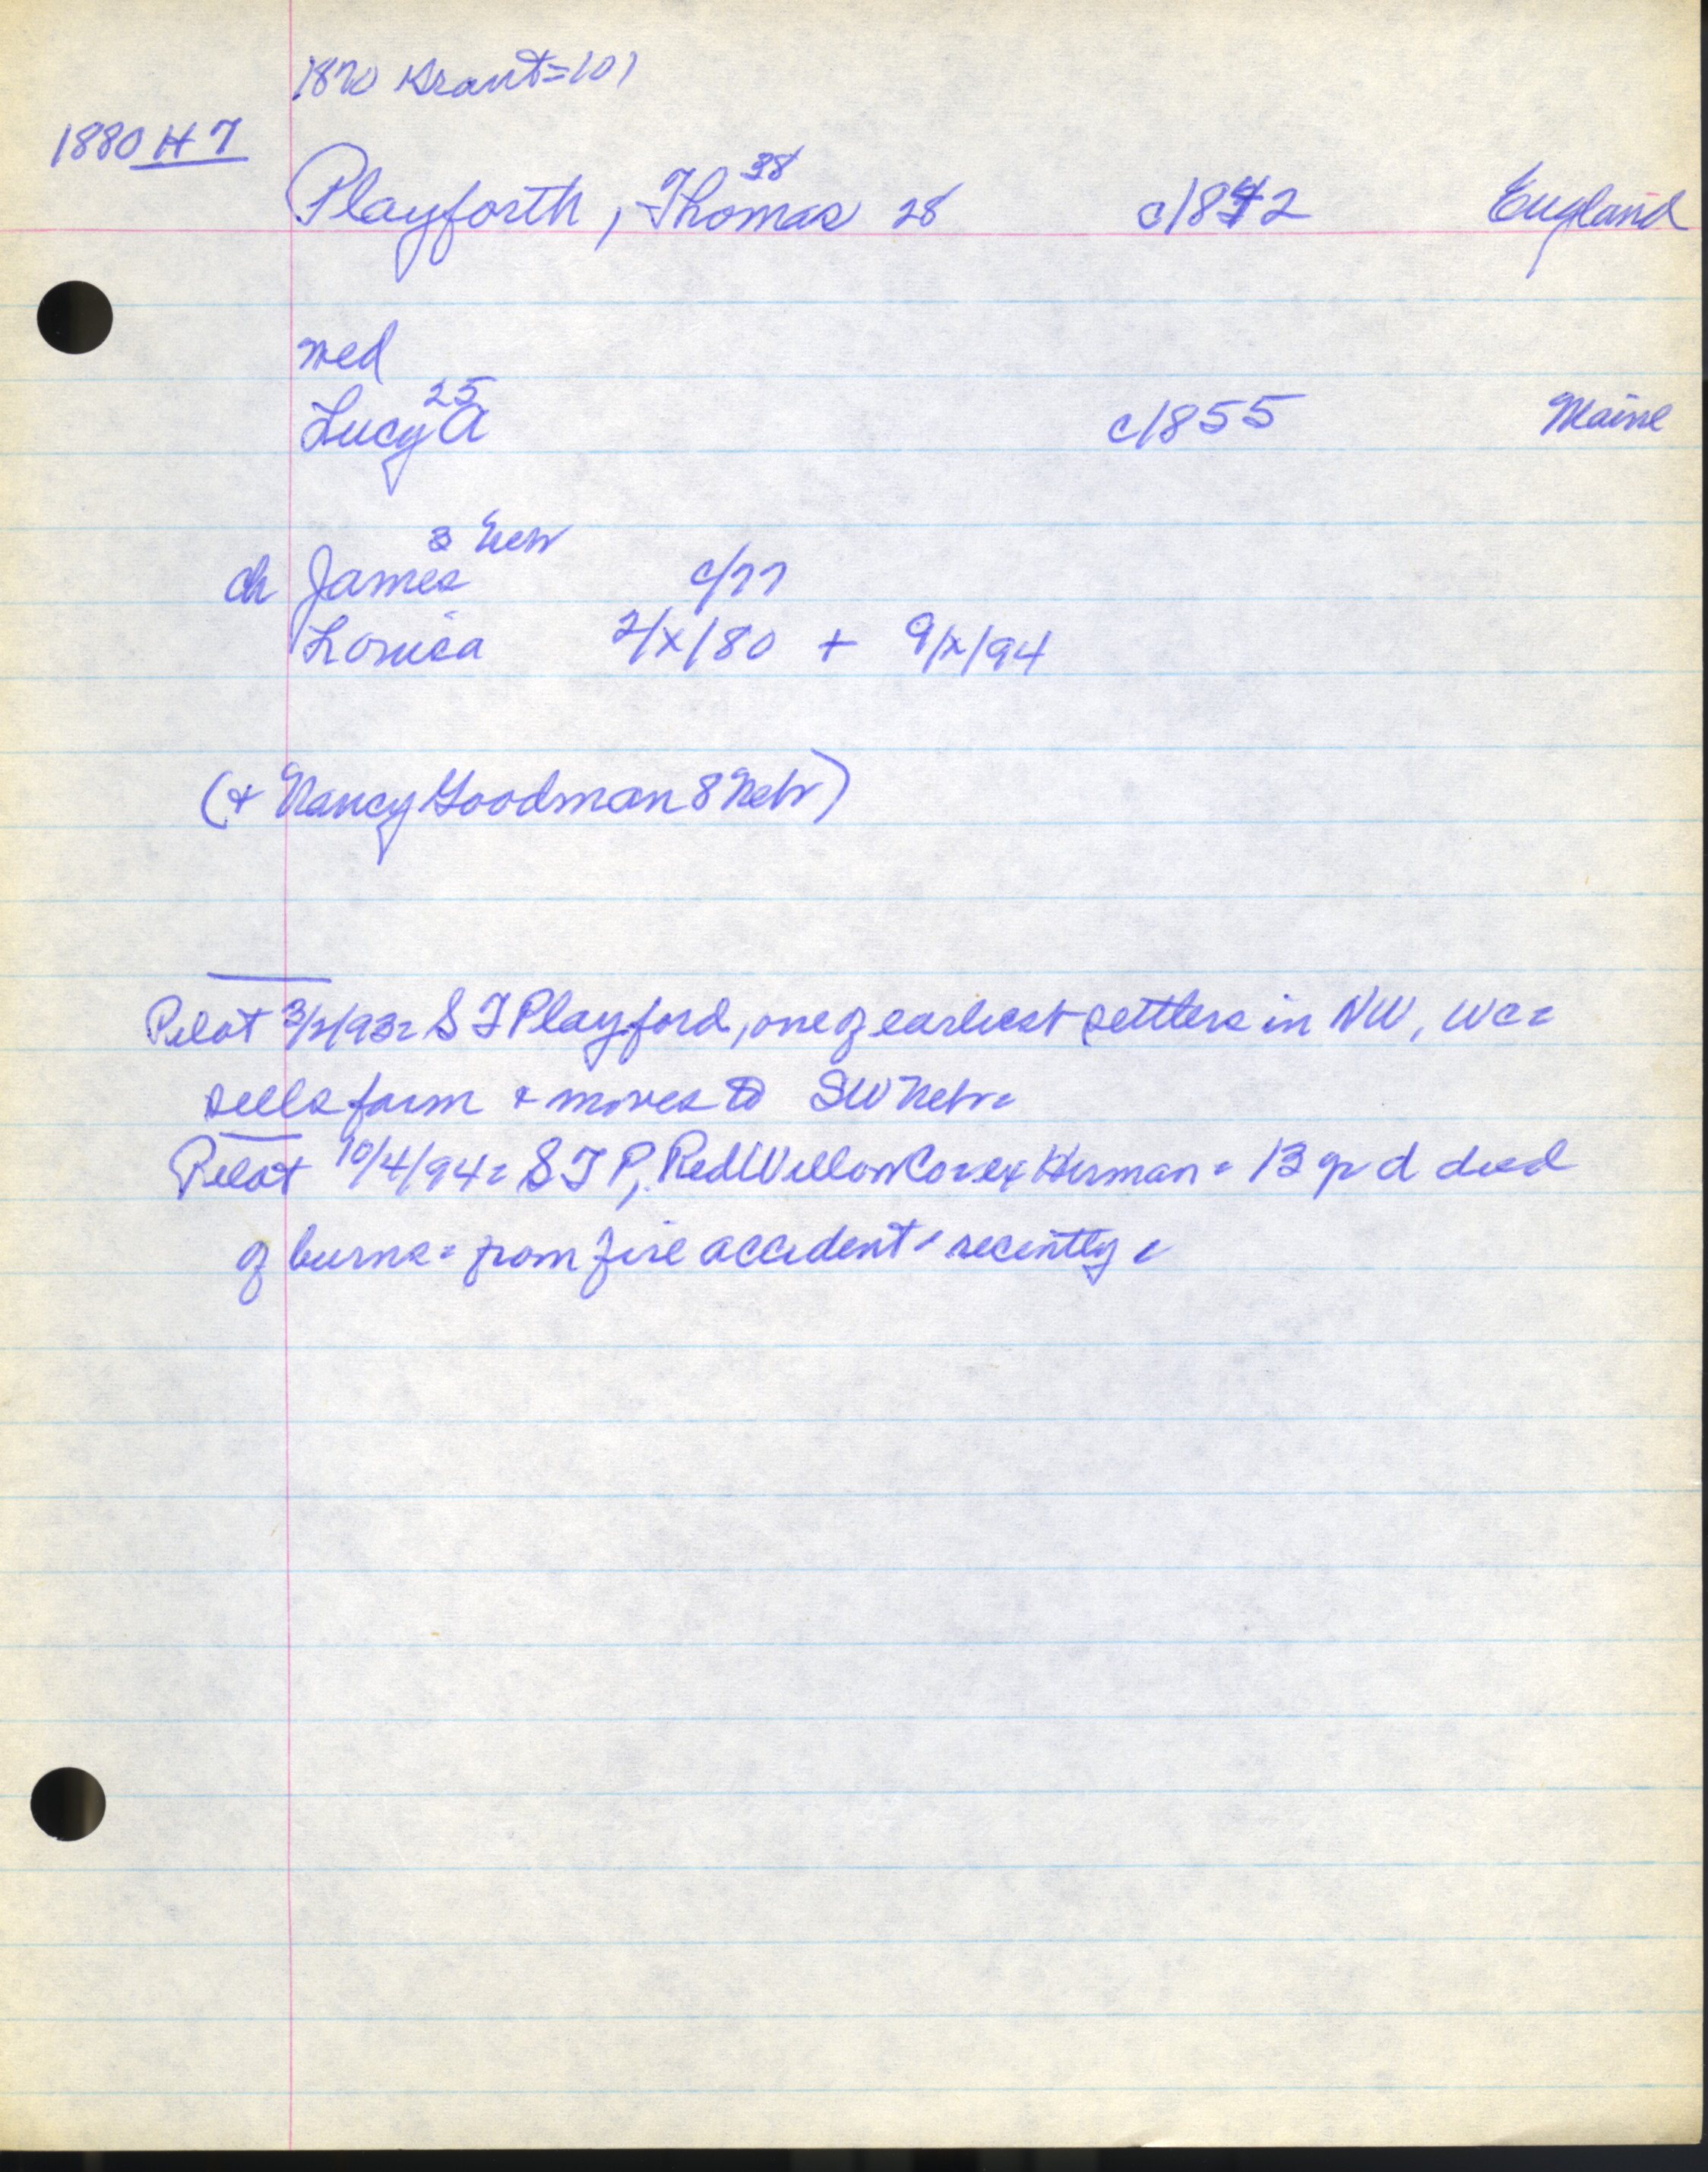 1870 Grant=101
1880 H 7
38
Playforth, Thomas 28 c/1842 England
wed
25
Lucy A c/1855 Maine
3 Neb
ch James c/77
Louisa 2/x/80 + 9/x/94
(+ Nancy Goodman 8 Nebr)
Pilot 3/2/93= S T Playford, one of earliest settlers in NW, WC=
sells farm & moves to SW Nebr=
Pilot 10/4/94= S T P, Red Willow Co= ex Herman= 13 yr d died
of burns= from fire accident= recently=